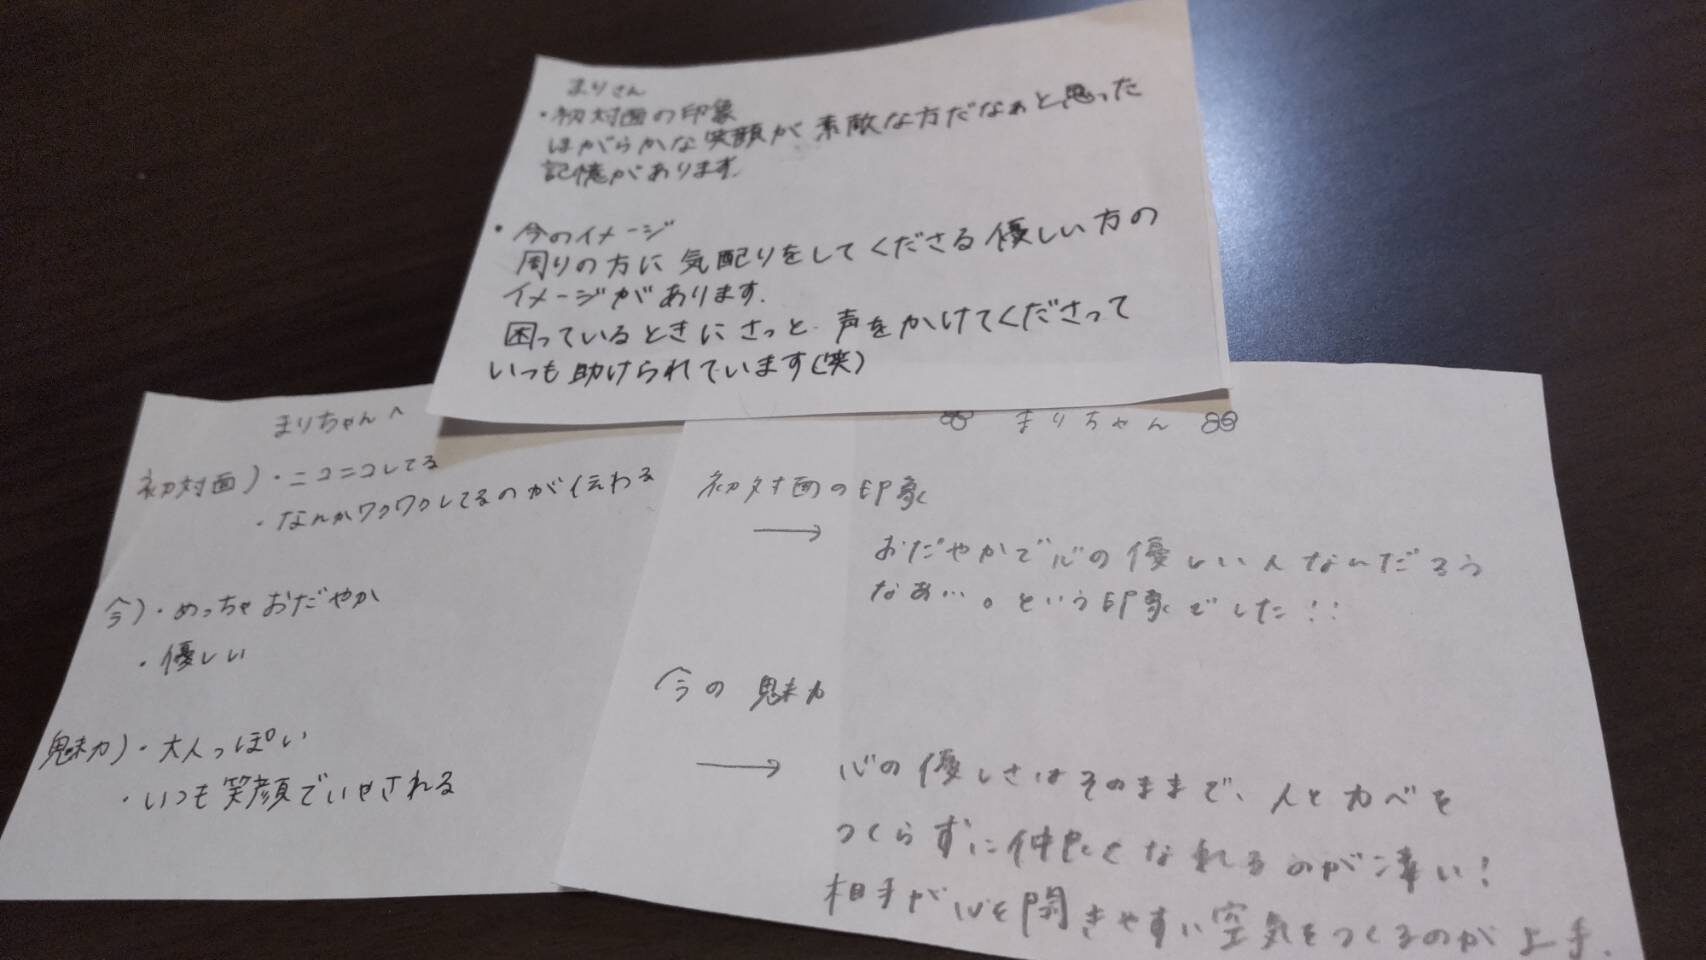 まりさん
・初対面の印象
ほがらかな笑顔が素敵な方だなぁと思った
記憶があります。
・今のイメージ
周りの方に気配りをしてくださる優しい方の
イメージがあります。
困っているときにさっと声をかけてくださって
いつも助けられています(笑)
まりちゃんへ
初対面)・ニコニコしてる
・なんかワクワクしてるのが伝わる
今)・めっちゃおだやか
・優しい
魅力)・大人っぽい
・いつも笑顔でいやされる
まりちゃん
初対面の印象
→ おだやかで心の優しい人なんだろう
なぁ…。という印象でした!!
今の魅力
→ 心の優しさはそのままで、人とカベを
つくらずに仲良くなれるのが凄い!
相手が心を開きやすい空気をつくるのが上手。